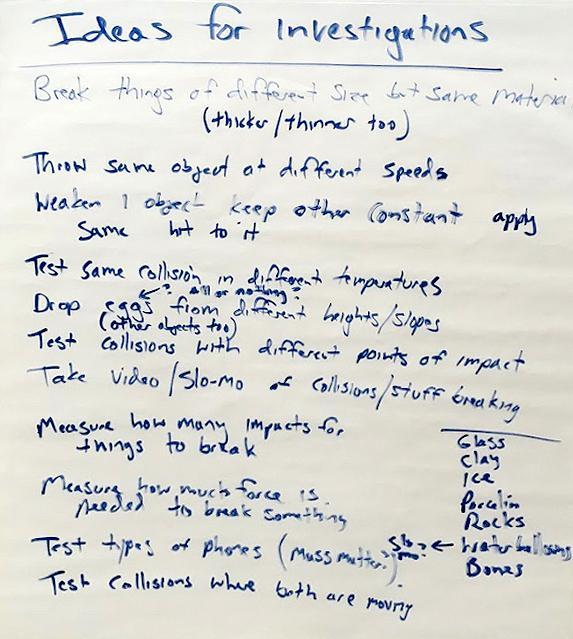 Ideas for Investigations
Break things of different size but same material
(thicker/thinner too)
Throw same object at different speeds
Weaken 1 object keep other constant apply
same hit to it
Test same collision in different temperatures
? all or nothing?
Drop eggs from different heights/slopes
(other objects too)
Test collisions with different points of impact
Take video/Slo-Mo of collisions/stuff breaking
Measure how many impacts for
things to break
Measure how much force is
needed to break something
Test types of phones (Mass matter?)
Test Collisions where both are moving
Glass
Clay
Ice
Porcelin
Rocks
Slo mo? ← Water balloons
Bones